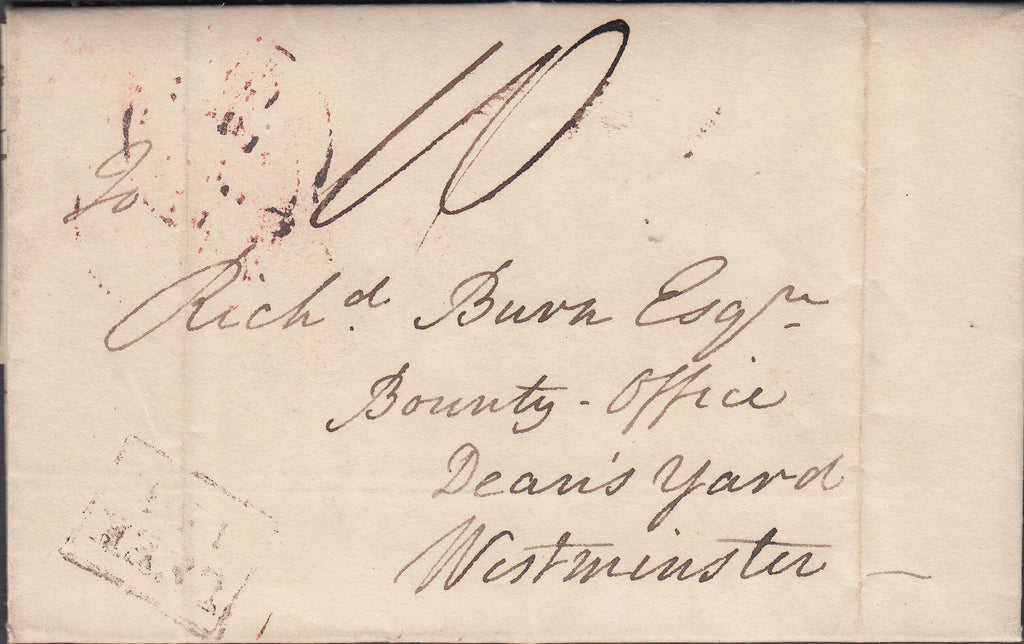 10
To
Rich.d Burn Esqre
Bounty - Office
Dean's Yard
Westminster